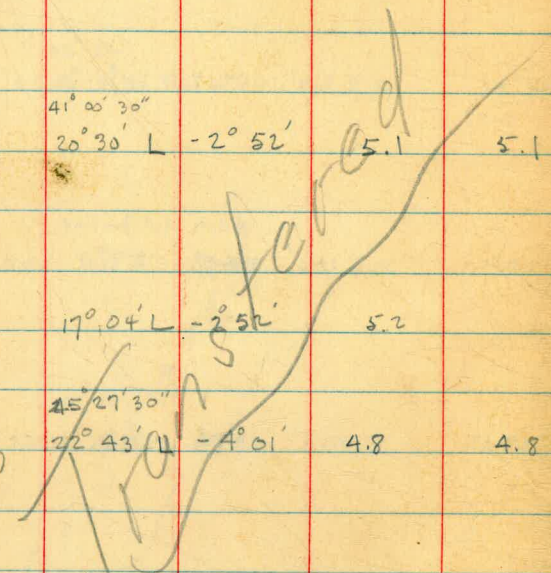 41° 00' 30"
20° 30' L -2° 52' 5.1 5.1
17° 04' L -2° 52' 5.2
45° 27' 30"
22° 43' L -4° 01' 4.8 4.8
Transferod